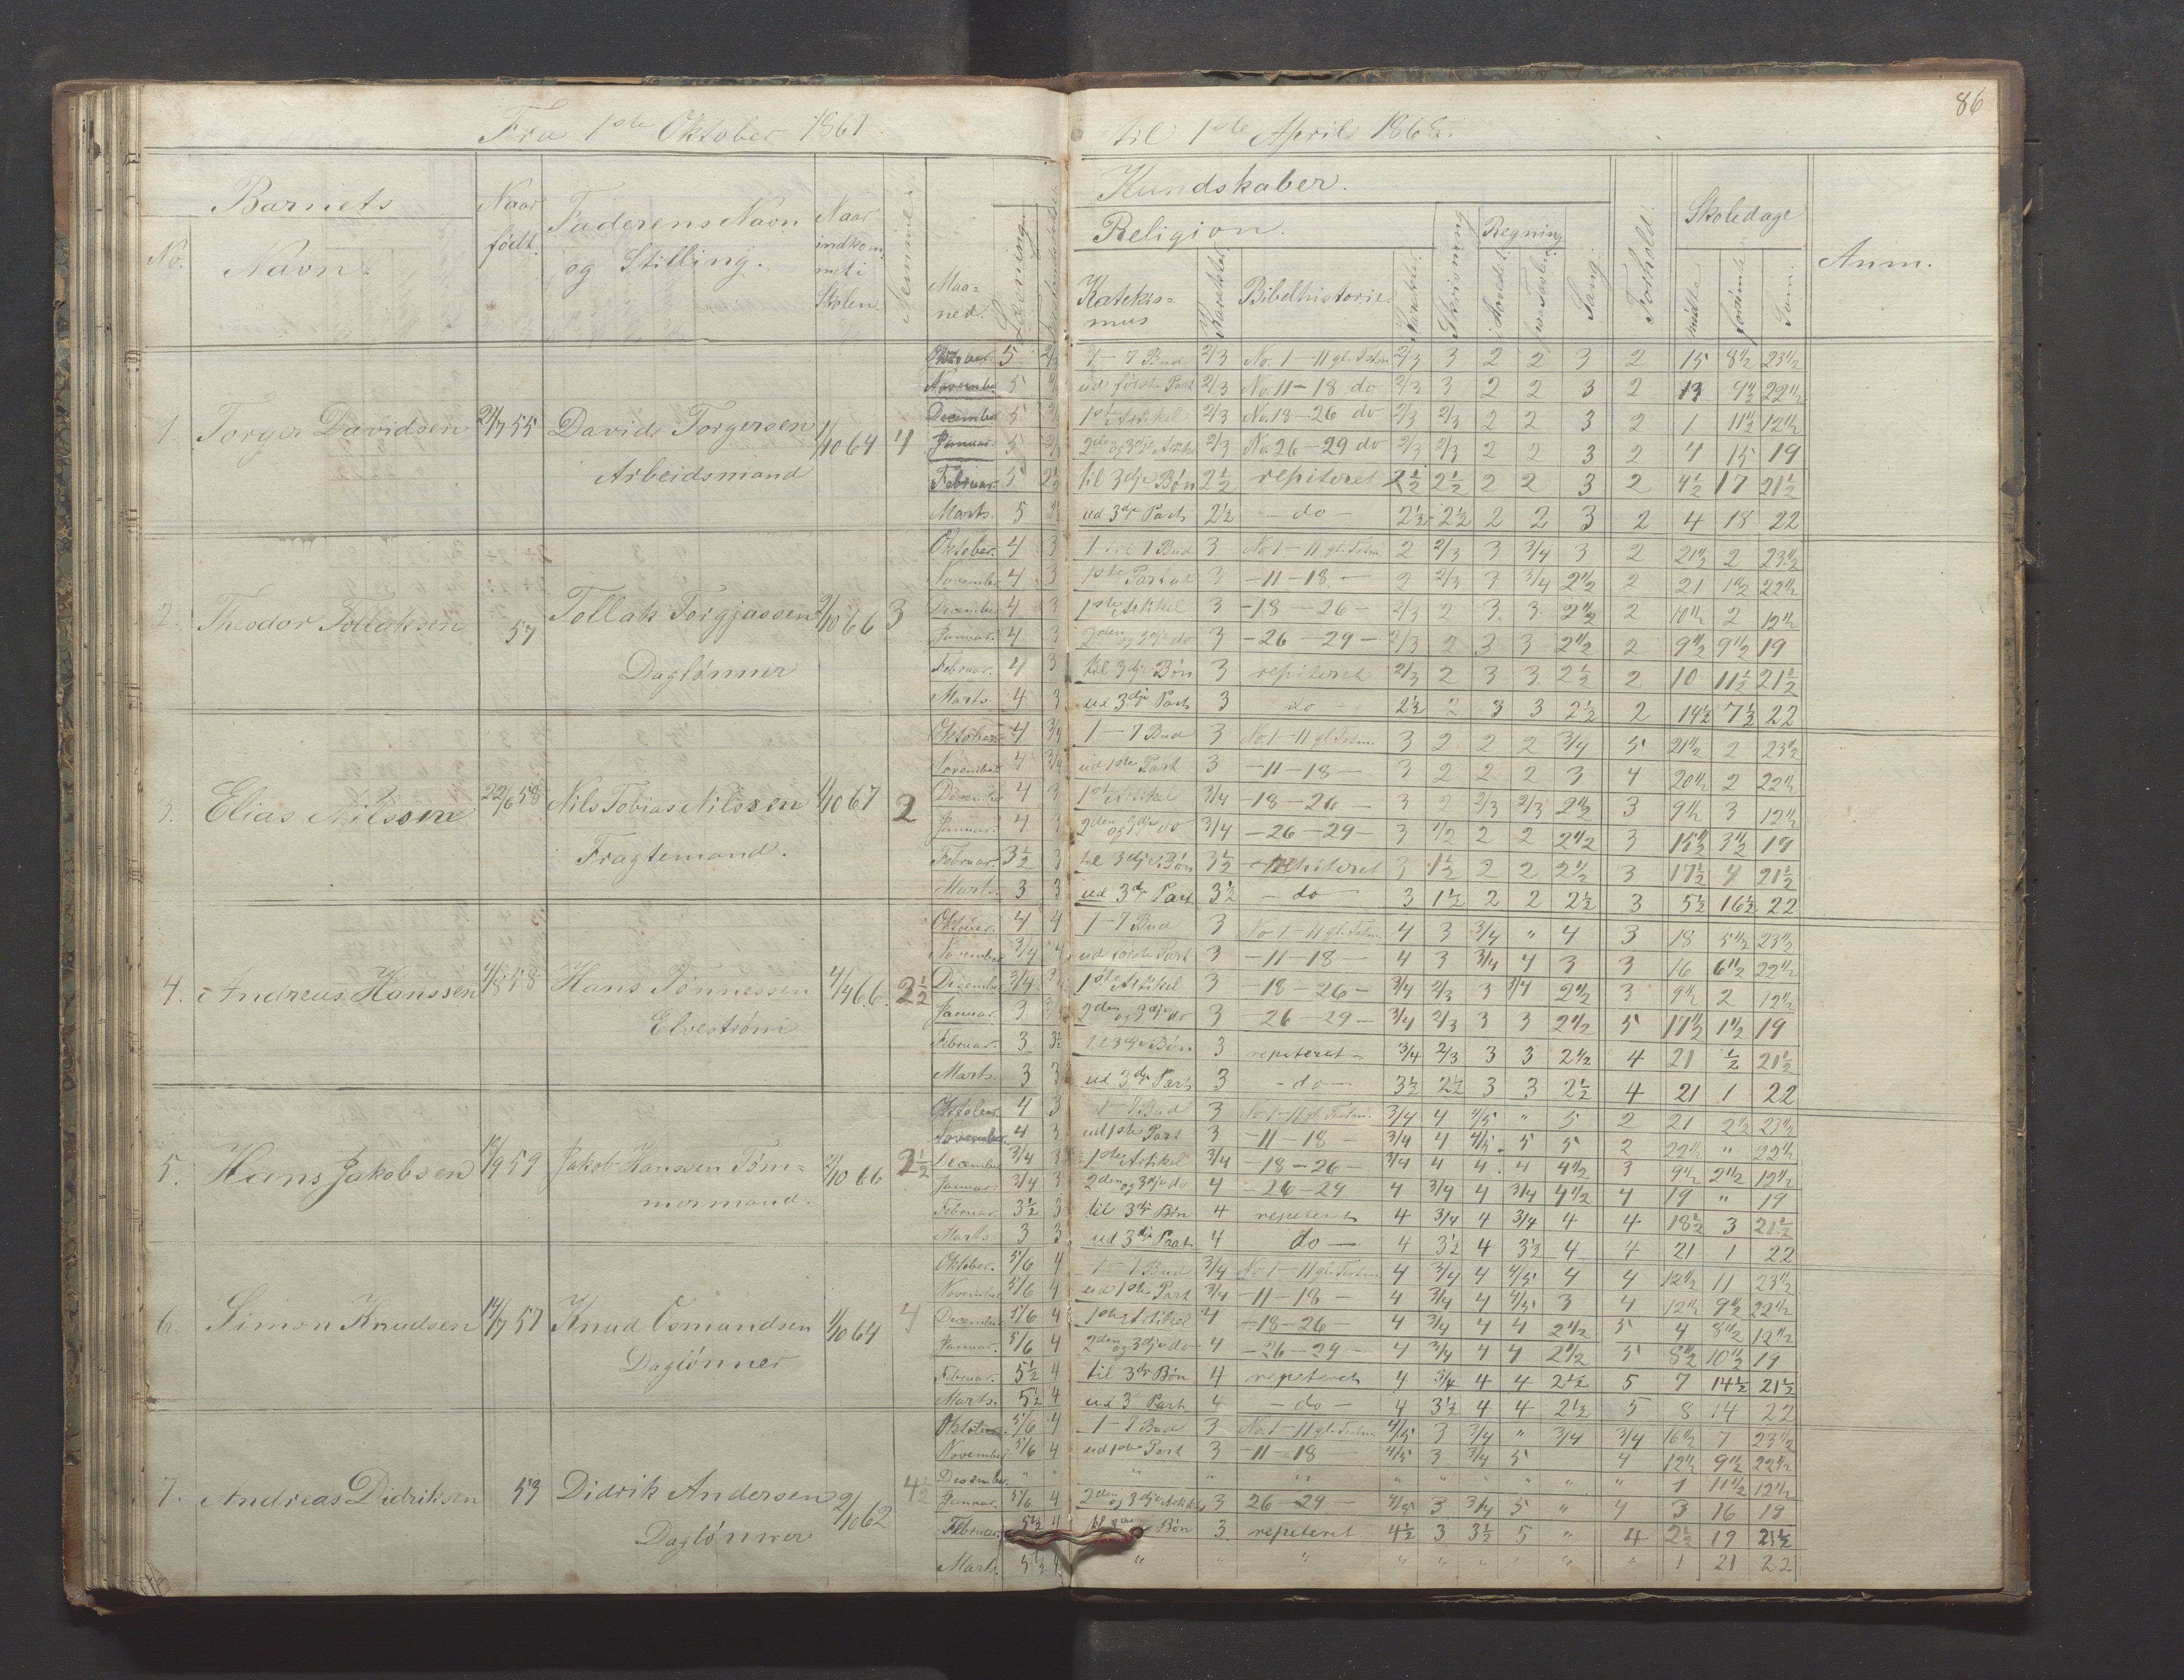 86
Fra 1ste Oktober 1867 til 1ste April 1868.
Barnets
No. Navn.
Naar født.
Faderens Navn og Stilling.
Naar indkommet i Skolen.
Nemme
Maaned.
Læsning
Kundskaber.
Religion.
Katekismus
Karakter.
Bibelhistorie.
Karakter.
Skrivning
Regning
Hovedet
paa Tavlen
Sang.
Forhold.
Skoledage
mødte
forsømte
Sum.
Anm.
1. Torger Davidsen 21/7 55 David Torgersen 1/10 64 4
Arbeidsmand
Oktober 5 2/3 1-7 Bud 2/3 No. 1-11 gl. Tstm 2/3 3 2 2 3 2 15 8 1/2 23 1/2
November 5 ud første Part 2/3 No. 11-18 do 2/3 3 2 2 3 2 13 9 1/2 22 1/2
December 5 1ste Artikel 2/3 No. 18-26 do 2/3 2/3 2 2 3 2 1 11 1/2 12 1/2
Januar. 5 2den og 3dje Artikel 2/3 No. 26-29 do 2/3 2/3 2 2 3 2 4 15 19
Februar. 5 2 1/2 til 3dje Bøn 2 1/2 repiteret 2 1/2 2 1/2 2 2 3 2 4 1/2 17 21 1/2
Marts. 5 ud 3dje Part 2 1/2 - do - 2 1/2 2 1/2 2 2 3 2 4 18 22
2. Theodor Tollaksen 57 Tollak Torgjussen 2/10 66 3
Daglønner
Oktober. 4 3 1 til 7 Bud 3 No 1-11 gl. Tstm. 2 2/3 3 3/4 3 2 21 1/2 2 23 1/2
November 4 3 1ste Part ud 3 -11-18- 2 2/3 3 3/4 2 1/2 2 21 1 1/2 22 1/2
December 4 3 1ste Artikel 3 -18-26- 2/3 2 3 3 2 1/2 2 10 1/2 2 12 1/2
Januar. 4 3 2den og 3dje do 3 -26-29- 2/3 2 3 3 2 1/2 2 9 1/2 9 1/2 19
Februar. 4 3 til 3dje Bøn 3 repiteret 2/3 2 3 3 2 1/2 2 10 11 1/2 21 1/2
Marts. 4 3 ud 3dje Part 3 do - 2 1/2 2 3 3 2 1/2 2 14 1/2 7 1/2 22
3. Elias Nilsen 22/6 58 Nils Tobias Nilssen 1/10 67 2
Fragtemand.
Oktober 4 3/4 1-7 Bud 3 No. 1-11 gl Tstm. 3 2 2 2 3/4 5 21 1/2 2 23 1/2
November 4 3/4 ud 1ste Part 3 -11-18- 3 2 2 2 3 4 20 1/2 2 22 1/2
December 4 3 1ste Artikel 3/4 -18-26- 3 2 2/3 2/3 2 1/2 3 9 1/2 3 12 1/2
Januar. 4 3 2den og 3dje do 3/4 -26-29- 3 1/2 2 2 2 1/2 3 15 1/2 3 1/2 19
Februar. 3 1/2 3 til 3dje Bøn 3 1/2 repiteret 3 1 1/2 2 2 2 1/2 3 17 1/2 4 21 1/2
Marts. 3 3 ud 3dje Part 3 1/2 - do - 3 1 1/2 2 2 2 1/2 3 5 1/2 16 1/2 22
4. Andreas Hanssen 4/8 58 Hans Tønnessen 4/4 66. 2 1/2
Elvestrøm
Oktober. 4 4 1-7 Bud 3 No 1-11 gl. Tstm. 4 3 3/4 " 4 3 18 5 1/2 23 1/2
November 3/4 4 ud første Part 3 -11-18- 4 3 3/4 4 3 3 16 6 1/2 22 1/2
December 3/4 1ste Artikel 3 -18-26- 3/4 2/3 3 3/4 2 1/2 3 9 1/2 2 12 1/2
Januar. 3 2den og 3dje do 3 -26-29- 3/4 2/3 3 3 2 1/2 5 17 1/2 1 1/2 19
Februar. 3 3 1/2 til 3dje Bøn 3 repeteret - 3/4 2/3 3 3 2 1/2 4 21 1/2 21 1/2
Marts. 3 3 ud 3dje Part 3 - do - 3 1/2 2 1/2 3 3 2 1/2 4 21 1 22
5. Hans Jakobsen 19/9 59 Jakob Hanssen Tøm= 2/10 66 2 1/2
mermand.
Oktober 4 3 1-7 Bud 3 No 1-11 gl. Tstm. 3/4 4 4/5 " 5 2 21 2 1/2 23 1/2
November 4 3 ud 1ste Part 3 -11-18- 3/4 4 4/5 5 5 2 22 1/2 " 22 1/2
December 3/4 3 1ste Artikel 3/4 -18-26- 3/4 4 4 4 4 1/2 3 9 1/2 2 1/2 12 1/2
Januar. 3/4 3 2den og 3dje do 4 -26-29 4 3/4 4 3/4 4 1/2 4 19 " 19
Februar. 3 1/2 3 til 3dje Bøn 4 repeteret 4 3/4 4 3/4 4 4 18 1/2 3 21 1/2
Marts 3 3 ud 3dje Part 4 do - 4 3 1/2 4 3 1/2 4 4 21 1 22
6. Simon Knudsen 14/7 57 Knud Osmundsen 1/10 64 4
Daglønner
Oktober. 5/6 4 1-7 Bud 3/4 No 1-11 gl. Tstm. 4 3/4 4 4/5 4 4 12 1/2 11 23 1/2
November 5/6 4 ud 1ste Part 3/4 -11-18- 4 3/4 4 4/5 3 4 12 1/2 9 1/2 22 1/2
December 5/6 4 1ste Artikel 4 -18-26- 4 3/4 4 4 2 1/2 5 4 8 1/2 12 1/2
Januar. 5/6 4 2den og 3dje do 4 -26-29- 4 3/4 4 4 2 1/2 5 8 1/2 10 1/2 19
Februar. 5 1/2 4 til 3dje Bøn 4 repeteret 4 3/4 4 4 2 1/2 5 7 14 1/2 21 1/2
Marts. 5 1/2 4 ud 3 Part 4 - do - 4 3 1/2 4 4 2 1/2 5 8 14 22
7. Andreas Didriksen 53 Didrik Andersen 2/10 62 4 1/2
Daglønner
Oktober. 5/6 4 1-7 Bud 3 No. 1-11 gl. Tstm 4/5 3 3/4 " 3/4 3/4 16 1/2 7 23 1/2
November 5/6 4 ud 1ste Part 3 -11-18 4/5 3 3/4 5 4 12 1/2 9 1/2 22 1/2
December. " " " " " " " " " " " 1 11 1/2 12 1/2
Januar. 5/6 4 2den og 3dje Artikel 3 26-29- 4/5 3 3/4 5 " 4 3 16 19
Februar 5 1/2 4 Bøn 3 repeteret 4 1/2 3 3 1/2 5 " 4 2 1/2 19 21 1/2
Marts. 5 1/2 " " " " " " " " " 1 21 22